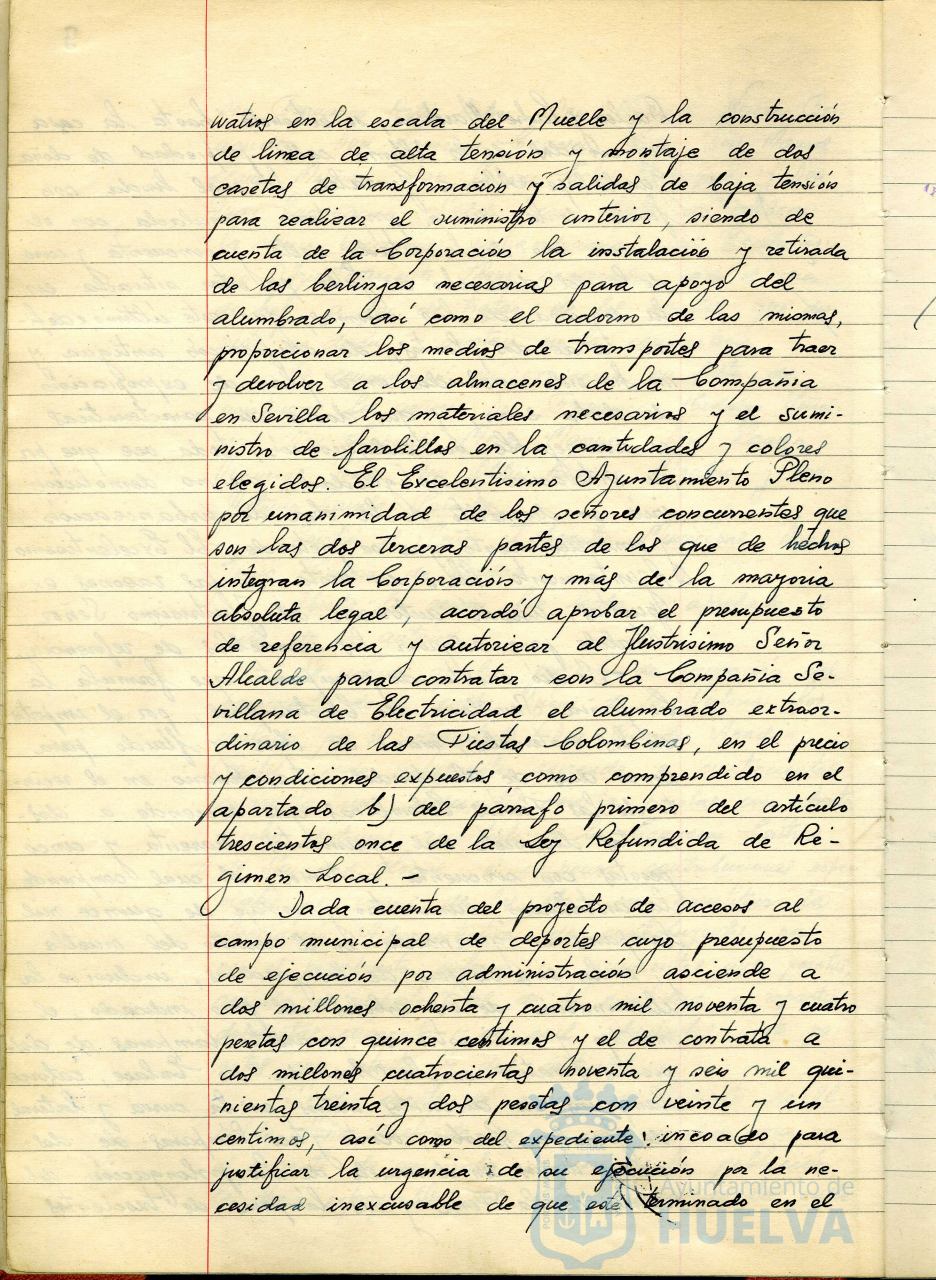 watios en la escala del Muelle y la construcción
de linea de alta tensión y montaje de dos
casetas de transformación y salidas de baja tensión
para realizar el suministro anterior, siendo de
cuenta de la Corporación la instalación y retirada
de las berlingas necesarias para apoyo del
alumbrado, así como el adorno de las mismas,
proporcionar los medios de transportes para traer
y devolver a los almacenes de la Compañia
en Sevilla los materiales necesarios y el sumi-
nistro de farolillos en la cantidades y colores
elegidos. El Excelentisimo Ayuntamiento Pleno
por unanimidad de los señores concurrentes que
son las dos terceras partes de los que de hechos
integran la Corporación y más de la mayoria
absoluta legal, acordó aprobar el presupuesto
de referencia y autorizar al Ilustrisimo Señor
Alcalde para contratar con la Compañia Se-
villana de Electricidad el alumbrado extraor-
dinario de las Fiestas Colombinas, en el precio
y condiciones expuestos como comprendido en el
apartado b) del párrafo primero del artículo
trescientos once de la Ley Refundida de Ré-
gimen Local. -
Dada cuenta del proyecto de accesos al
campo municipal de deportes cuyo presupuesto
de ejecución por administración asciende a
dos millones ochenta y cuatro mil noventa y cuatro
pesetas con quince centimos y el de contrata a
dos millones cuatrocientas noventa y seis mil qui-
nientas treinta y dos pesetas con veinte y un
centimos, así como del expediente incoado para
justificar la urgencia de su ejecución por la ne-
cesidad inexcusable de que esté terminado en el
Ayuntamiento de
HUELVA